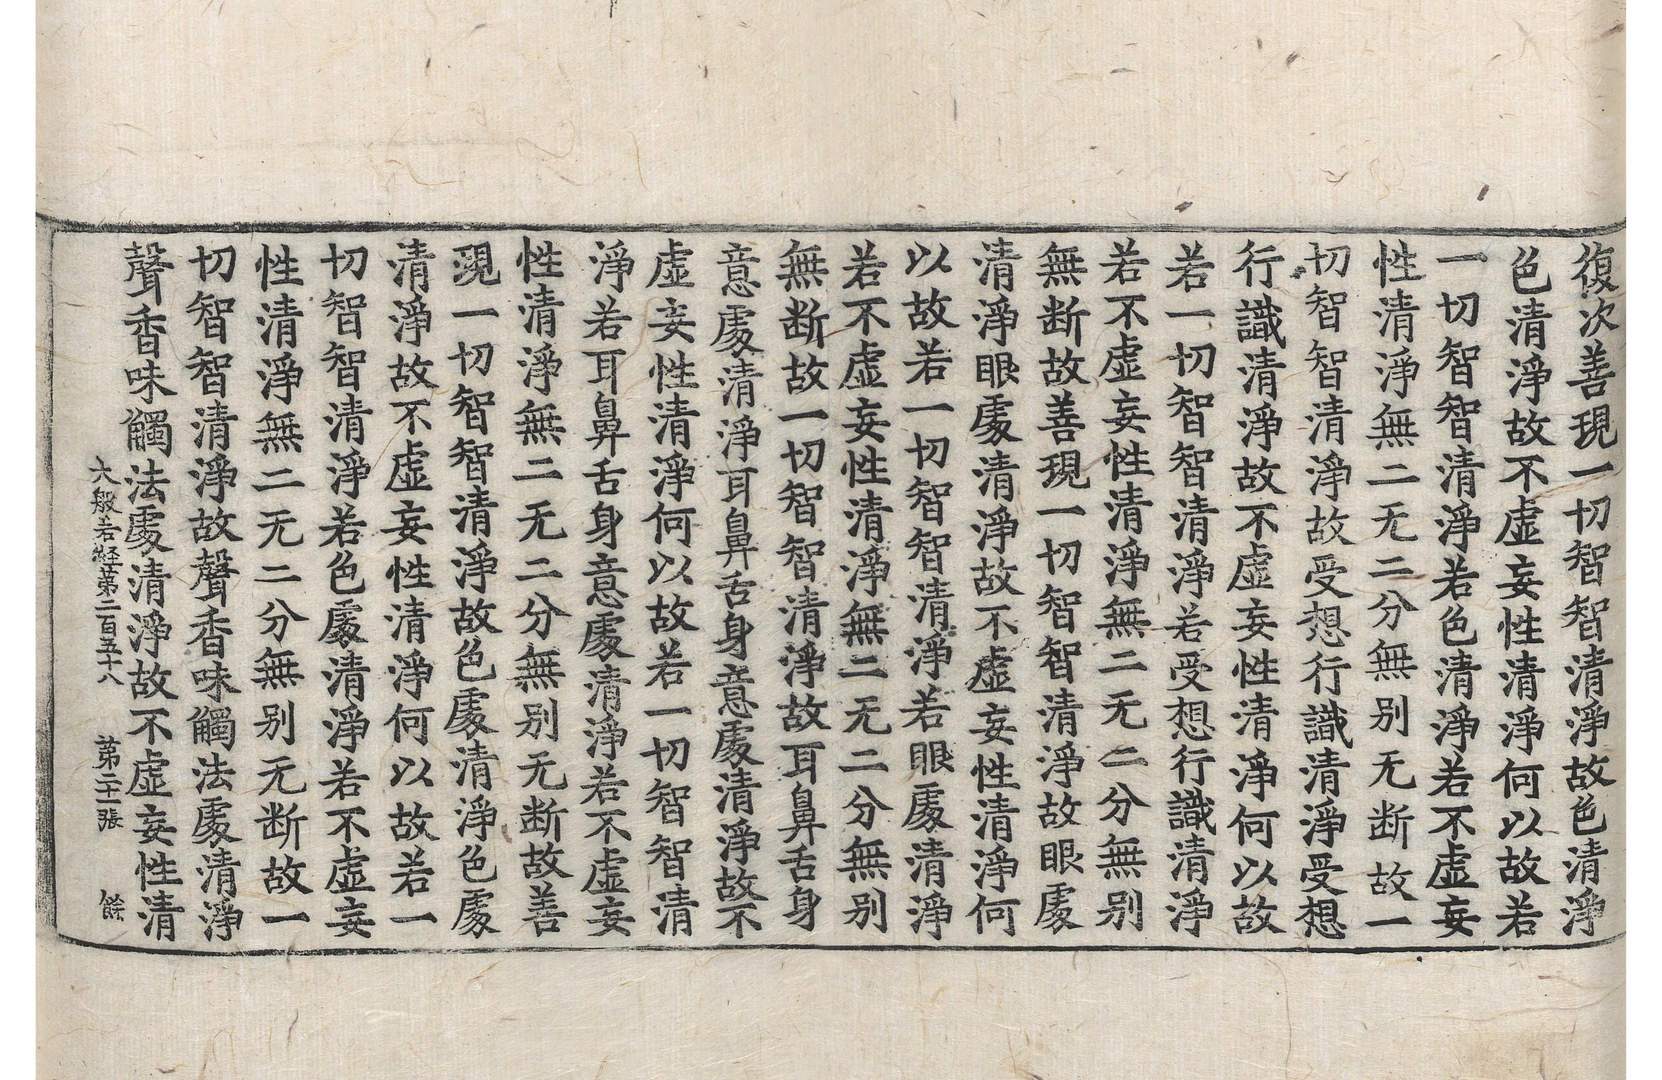 復次善現一切智智清淨故色清淨
色清淨故不虛妄性清淨何以故若
一切智智清淨若色清淨若不虛妄
性清淨無二无二分無別无断故一
切智智清淨故受想行識清淨受想
行識清淨故不虛妄性清淨何以故
若一切智智清淨若受想行識清淨
若不虛妄性清淨無二无二分無別
無断故善現一切智智清淨故眼處
清淨眼處清淨故不虛妄性清淨何
以故若一切智智清淨若眼處清淨
若不虛妄性清淨無二无二分無別
無断故一切智智清淨故耳鼻舌身
意處清淨耳鼻舌身意處清淨故不
虛妄性清淨何以故若一切智智清
淨若耳鼻舌身意處清淨若不虛妄
性清淨無二无二分無別无断故善
現一切智智清淨故色處清淨色處
清淨故不虛妄性清淨何以故若一
切智智清淨若色處清淨若不虛妄
性清淨無二无二分無別无断故一
切智智清淨故聲香味觸法處清淨
聲香味觸法處清淨故不虛妄性清
大般若經第二百五十八 第二十一張 餘